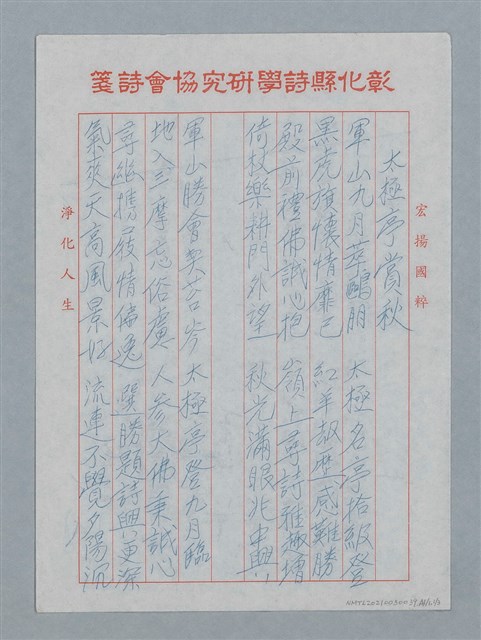 彰化縣詩學研究協會詩箋
宏揚國粹
太極亭賞秋
軍山九月萃鷗朋　太極名亭拾級登
黑虎旗懷情靡已　紅羊劫歷感難勝
殿前禮佛誠心抱　嶺上尋詩雅趣增
倚杖樂耕門外望　秋光滿眼兆中興
軍山勝會契苔岑　太極亭登九月臨
地入三摩忘俗慮　人參大佛秉誠心
尋幽攜屐情偏逸　選勝題詩興更深
氣爽天高風景好　流連不覺夕陽沉
淨化人生